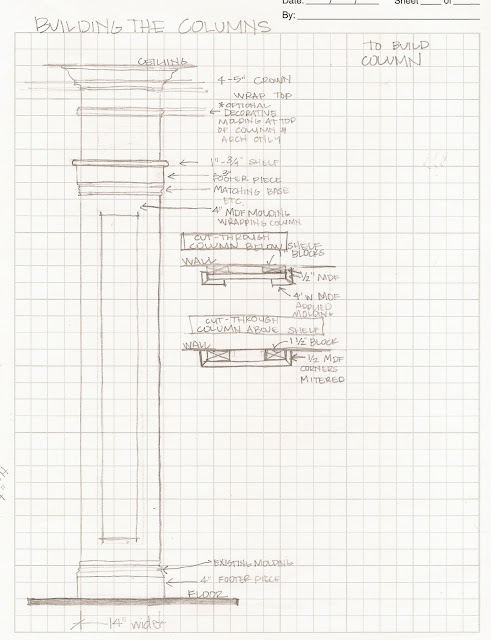 Date: ___/___/___ Sheet ___ of ___
By:
BUILDING THE COLUMNS
TO BUILD
COLUMN
CEILING
4-5" CROWN
WRAP TOP
*OPTIONAL
DECORATIVE
MOLDING AT TOP
OF COLUMN &
ARCH ONLY
1"-3/4" SHELF
3"
FOOTER PIECE
MATCHING BASE
ETC.
4" MDF MOLDING
WRAPPING COLUMN
CUT-THROUGH
COLUMN BELOW SHELF
1" BLOCKS
WALL
1/2" MDF
4" W MDF
APPLIED
MOLDING
CUT-THROUGH
COLUMN ABOVE SHELF
1 1/2 BLOCK
WALL
1/2 MDF
CORNERS
MITERED
EXISTING MOLDING
4" FOOTER PIECE
FLOOR
14" wide